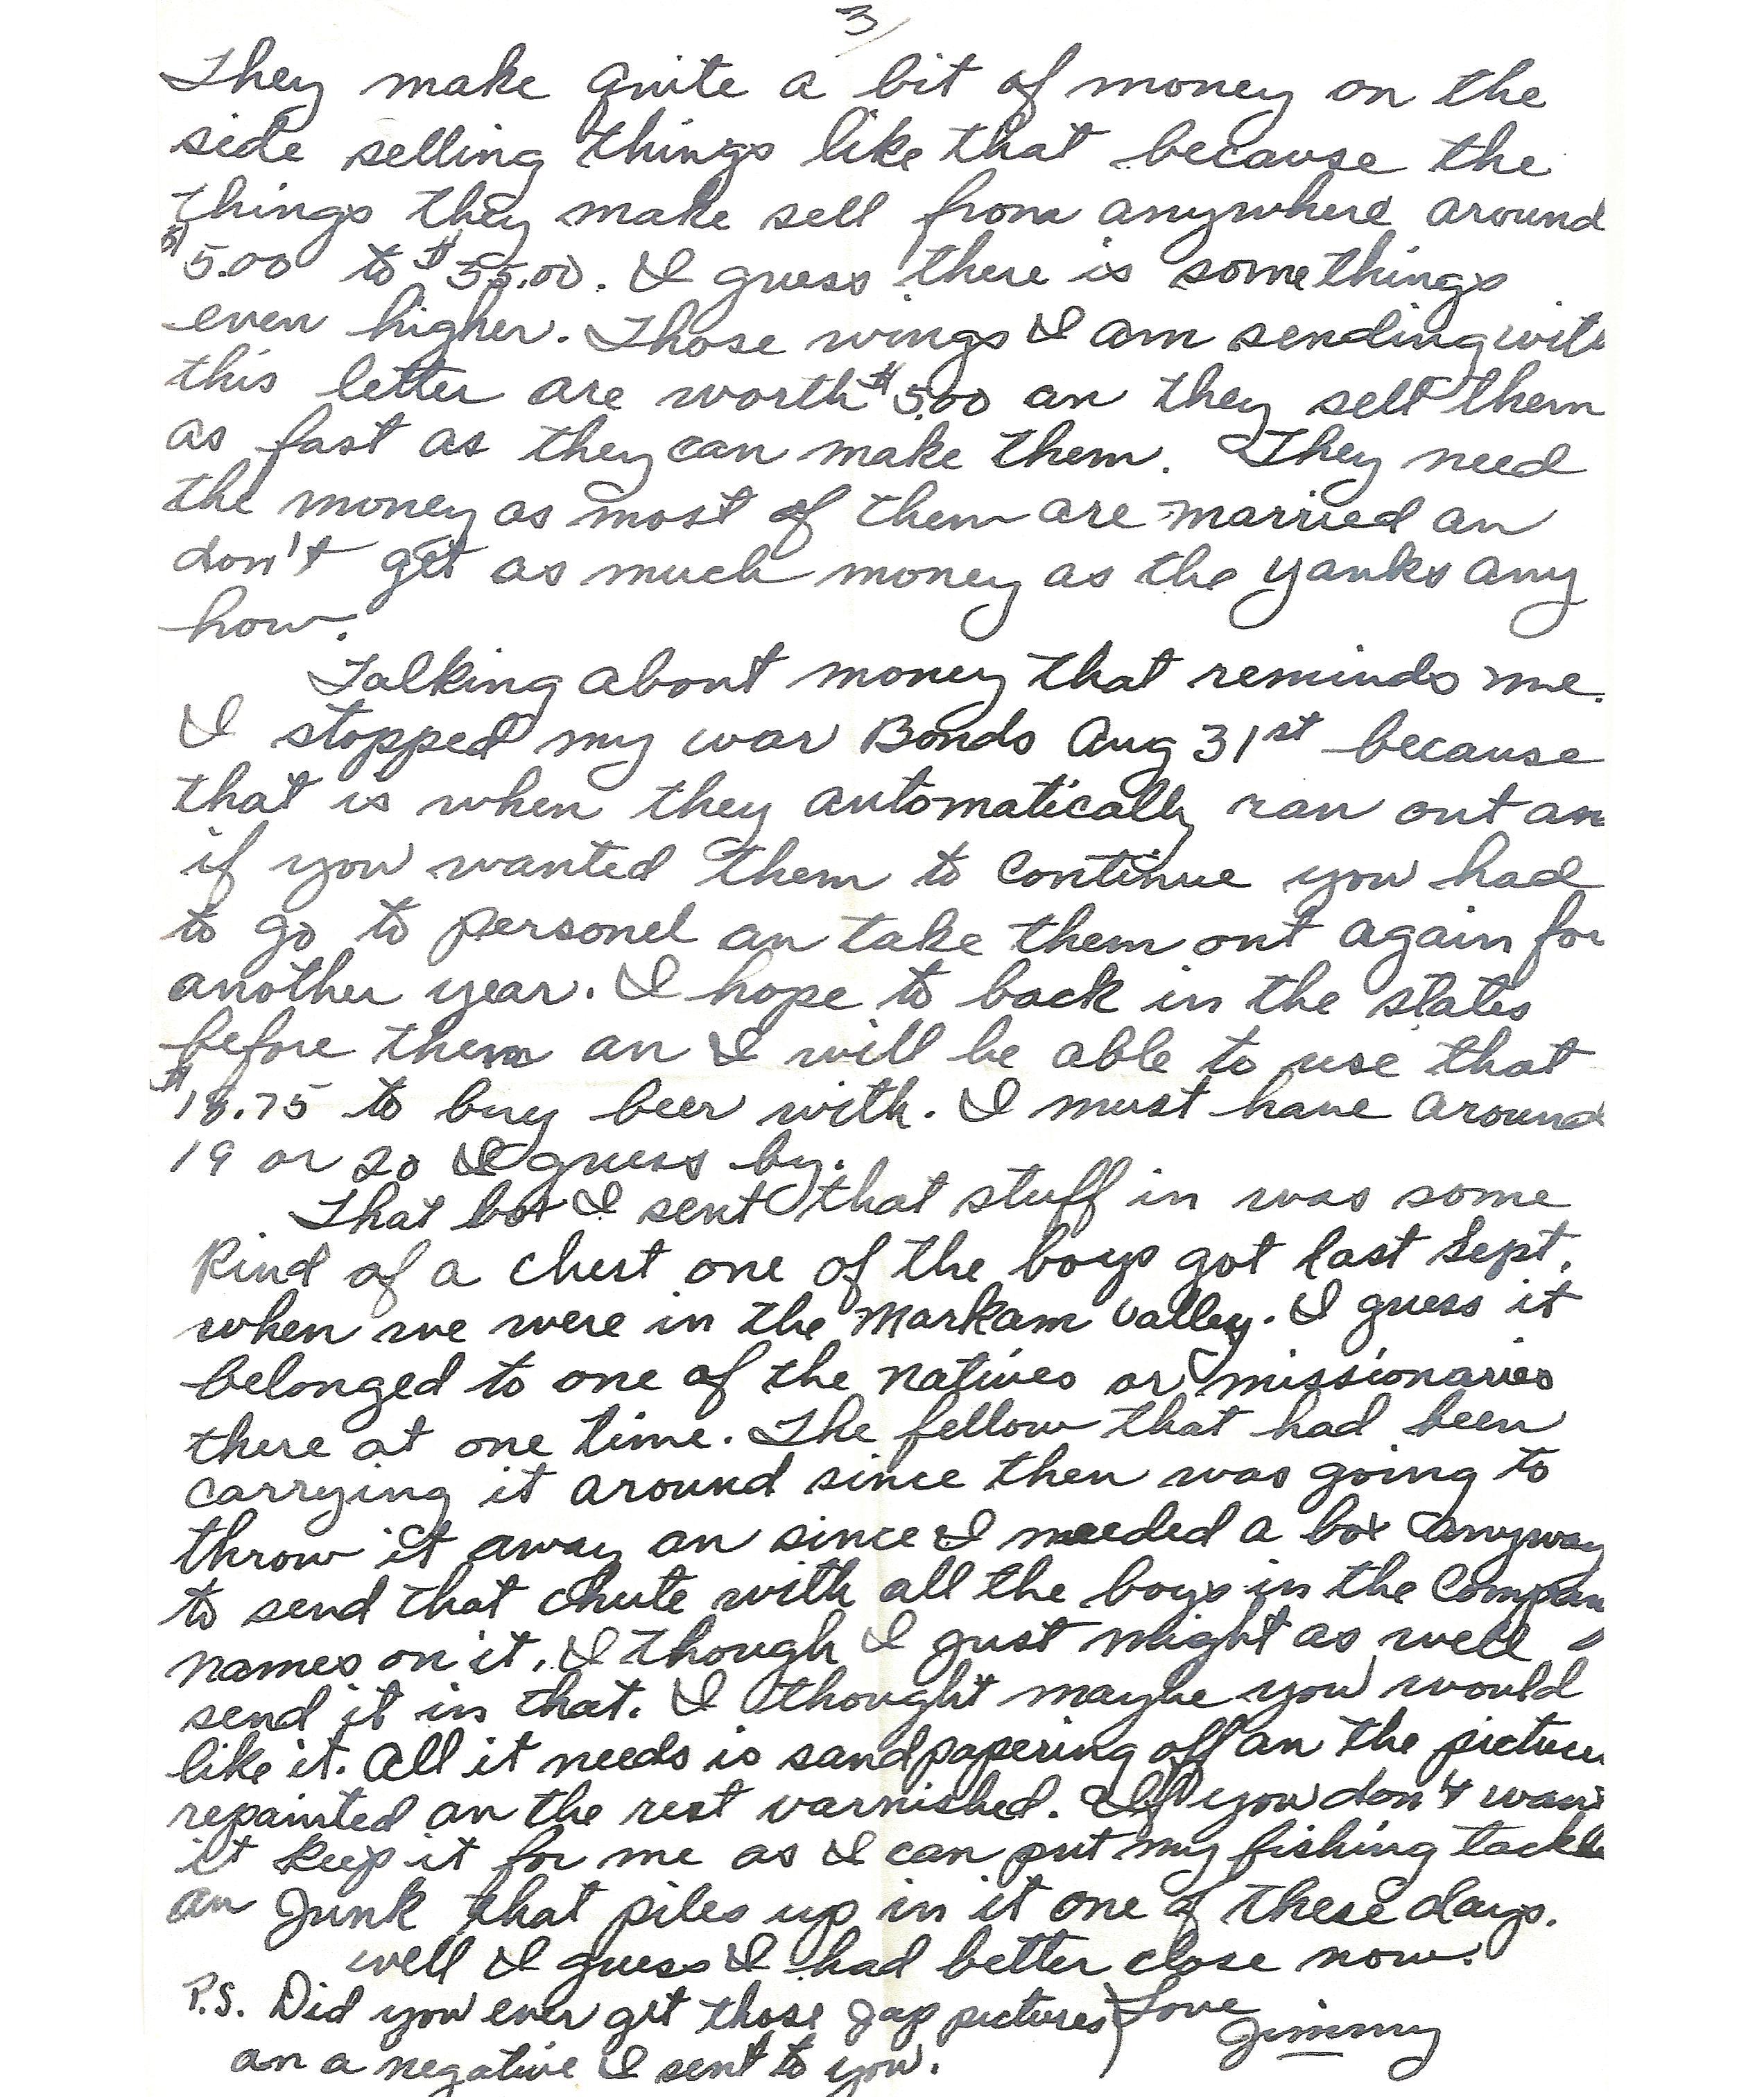 3/
They make quite a bit of money on the
side selling things like that because the
things they make sell from anywhere around
$5.00 to $55.00. I guess there is some things
even higher. Those wings I am sending with
this letter are worth $5.00 an they sell them
as fast as they can make them. They need
the money as most of them are married an
don't get as much money as the yanks any
how.
Talking about money that reminds me.
I stopped my war Bonds Aug 31st because
that is when they automatically ran out an
if you wanted them to continue you had
to go to personel an take them out again for
another year. I hope to back in the states
before them an I will be able to use that
$18.75 to buy beer with. I must have around
19 or 20 I guess by.
That box I sent that stuff in was some
kind of a chest one of the boys got last Sept.
when we were in the Markam Valley. I guess it
belonged to one of the natives or missionaries
there at one time. The fellow that had been
carrying it around since then was going to
throw it away an since I needed a box anyway
to send that chute with all the boys in the Company
names on it, I though I just might as well
send it in that. I thought maybe you would
like it. All it needs is sandpapering off an the picture
repainted an the rest varnished. If you don't want
it keep it for me as I can put my fishing tackle
an junk that piles up in it one of these days.
Well I guess I had better close now.
Love
Jimmy
P.S. Did you ever get those Jap pictures
an a negative I sent to you.